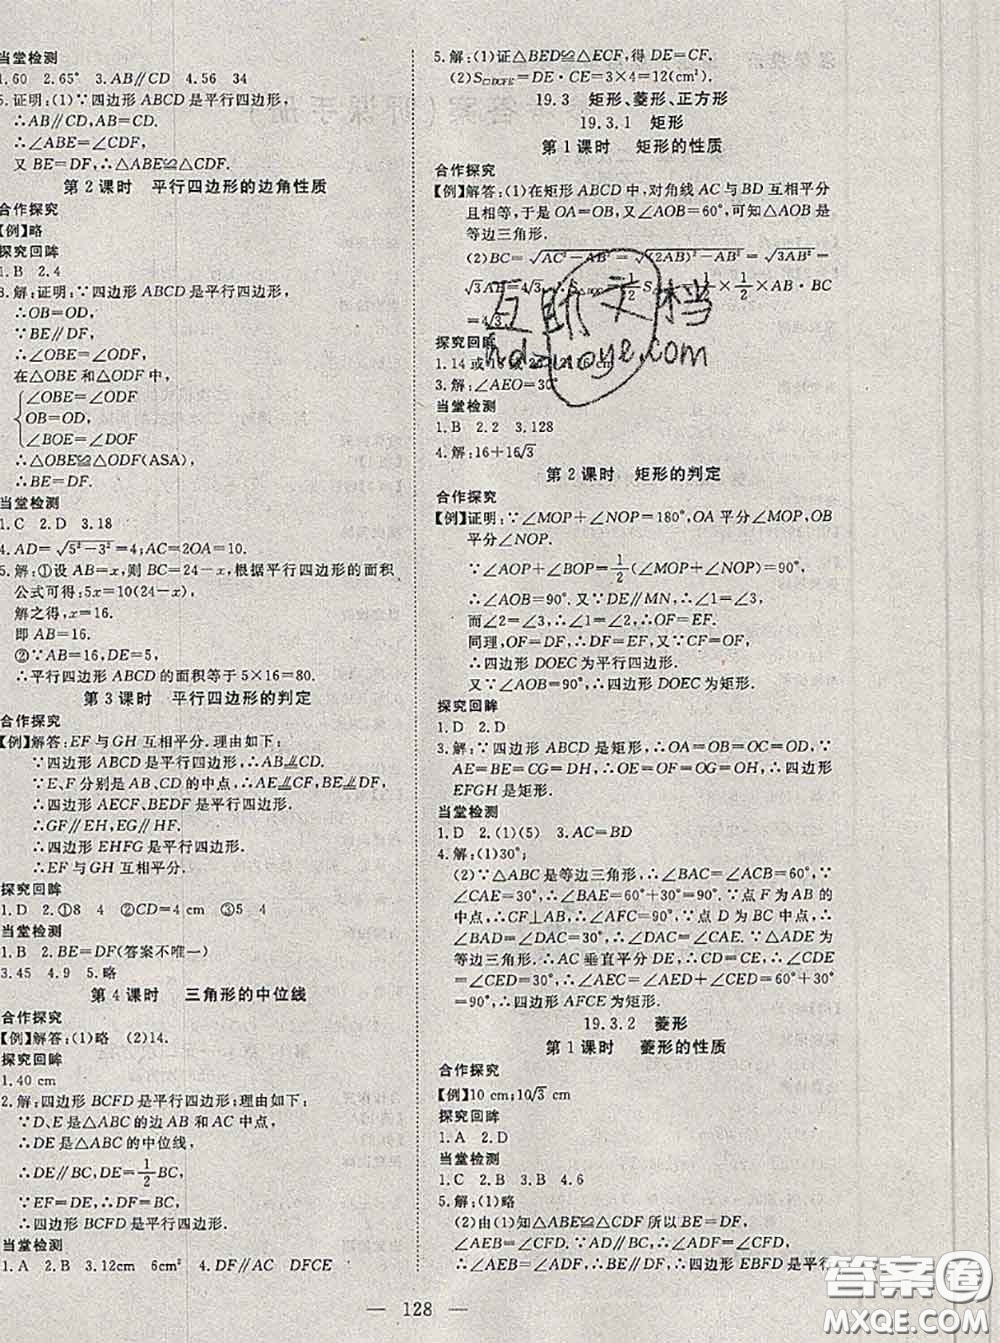 当堂检测
1.60 2.65° 3.AB//CD 4.56 34
5.证明:(1)∵四边形ABCD是平行四边形,
∴AB//CD,AB=CD.
∴∠ABE=∠CDF.
又BE=DF,∴△ABE≌△CDF.
第2课时 平行四边形的边角性质
合作探究
【例】略
探究回眸
1.B 2.4
3.解:证明:∵四边形ABCD是平行四边形,
∴OB=OD,
∵BE//DF,
∴∠OBE=∠ODF.
在△OBE和△ODF中,
∠OBE=∠ODF
OB=OD,
∠BOE=∠DOF
∴△OBE≌△ODF(ASA).
∴BE=DF.
当堂检测
1.C 2.D 3.18
4.AD=√5²-3²=4;AC=2OA=10.
5.解:①设AB=x,则BC=24-x,根据平行四边形的面积
公式可得:5x=10(24-x),
解之得,x=16.
即AB=16.
②∵AB=16,DE=5,
∴平行四边形ABCD的面积等于5×16=80.
第3课时 平行四边形的判定
合作探究
【例】解答:EF与GH互相平分.理由如下:
∵四边形ABCD是平行四边形,∴AB⫫CD.
∵E、F分别是AB、CD的中点,∴AE⫫CF,BE⫫DF,
∴四边形AECF、BEDF是平行四边形.
∴GF//EH,EG//HF.
∴四边形EHFG是平行四边形.
∴EF与GH互相平分.
探究回眸
1.D 2.①8 4 ②CD=4 cm ③5 4
当堂检测
1.B 2.BE=DF(答案不唯一)
3.45 4.9 5.略
第4课时 三角形的中位线
合作探究
【例】解答:(1)略 (2)14.
探究回眸
1.40 cm
2.解:四边形BCFD是平行四边形;理由如下:
∵D、E是△ABC的中点,
∴DE是△ABC的中位线,
∴DE//BC,DE=1/2BC,
∵EF=DE,∴DF=BC,
∴四边形BCFD是平行四边形.
当堂检测
1.A 2.B 3.12cm 6cm² 4.DF//AC DFCE
5.解:(1)证△BED≌△ECF,得DE=CF.
(2)S□DCFE=DE·CE=3×4=12(cm²).
19.3 矩形、菱形、正方形
19.3.1 矩形
第1课时 矩形的性质
合作探究
【例】解答:(1)在矩形ABCD中,对角线AC与BD互相平分
且相等,于是OA=OB,又∠AOB=60°,可知△AOB是
等边三角形.
(2)BC=√AC²-AB²=√(2AB)²-AB²=√3AB²=
√3AB=4√3.∴S△BOC=1/2S△ABC=1/2×1/2×AB·BC
=4√3.
探究回眸
3.解:∠AEO=30°
当堂检测
1.B 2.2 3.128
4.解:16+16√3
第2课时 矩形的判定
合作探究
【例】证明:∵∠MOP+∠NOP=180°,OA平分∠MOP,OB
平分∠NOP.
∵∠AOP+∠BOP=1/2(∠MOP+∠NOP)=90°,
∴∠AOB=90°.又∵DE//MN,∴∠1=∠3,
而∠2=∠3,∴∠1=∠2,∴OF=EF.
同理,OF=DF,∴DF=EF,又∵CF=OF,
∴四边形DOEC为平行四边形.
又∵∠AOB=90°,∴四边形DOEC为矩形.
探究回眸
1.D 2.D
3.解:∵四边形ABCD是矩形,∴OA=OB=OC=OD,∵
AE=BF=CG=DH,∴OE=OF=OG=OH,∴四边形
EFGH是矩形.
当堂检测
1.D 2.(1)(5) 3.AC=BD
4.解:(1)30°;
(2)∵△ABC是等边三角形,∴∠BAC=∠ABC=60°,∵
∠CAE=30°,∴∠BAE=60°+30°=90°.∵点F为AB的
中点,∴CF⊥AB,∴∠AFC=90°,∵点D为AC的中点,
∴∠CBD=30°,∴∠CBD=∠CAE.∵△ADE为
等边三角形.∴AC垂直平分DE,∴CD=CE,∴∠CDE
=∠CED=30°,∴∠AEC=∠AED+∠CED=60°+30°
=90°,∴四边形AFCE为矩形.
19.3.2 菱形
第1课时 菱形的性质
合作探究
【例】10 cm;10√3 cm
探究回眸
1.A 2.D
当堂检测
1.C 2.B 3.B 4.6
5.解:(1)略
(2)由(1)知△ABE≌△CDF所以BE=DF,
∠AEB=∠CFD.∵∠AEB=∠CFD,
∴∠AEB=∠CFD.又∵BE=DF,∴四边形是平行
128
互助文档
hdzuoye.com
答案圈
MXQE.COM